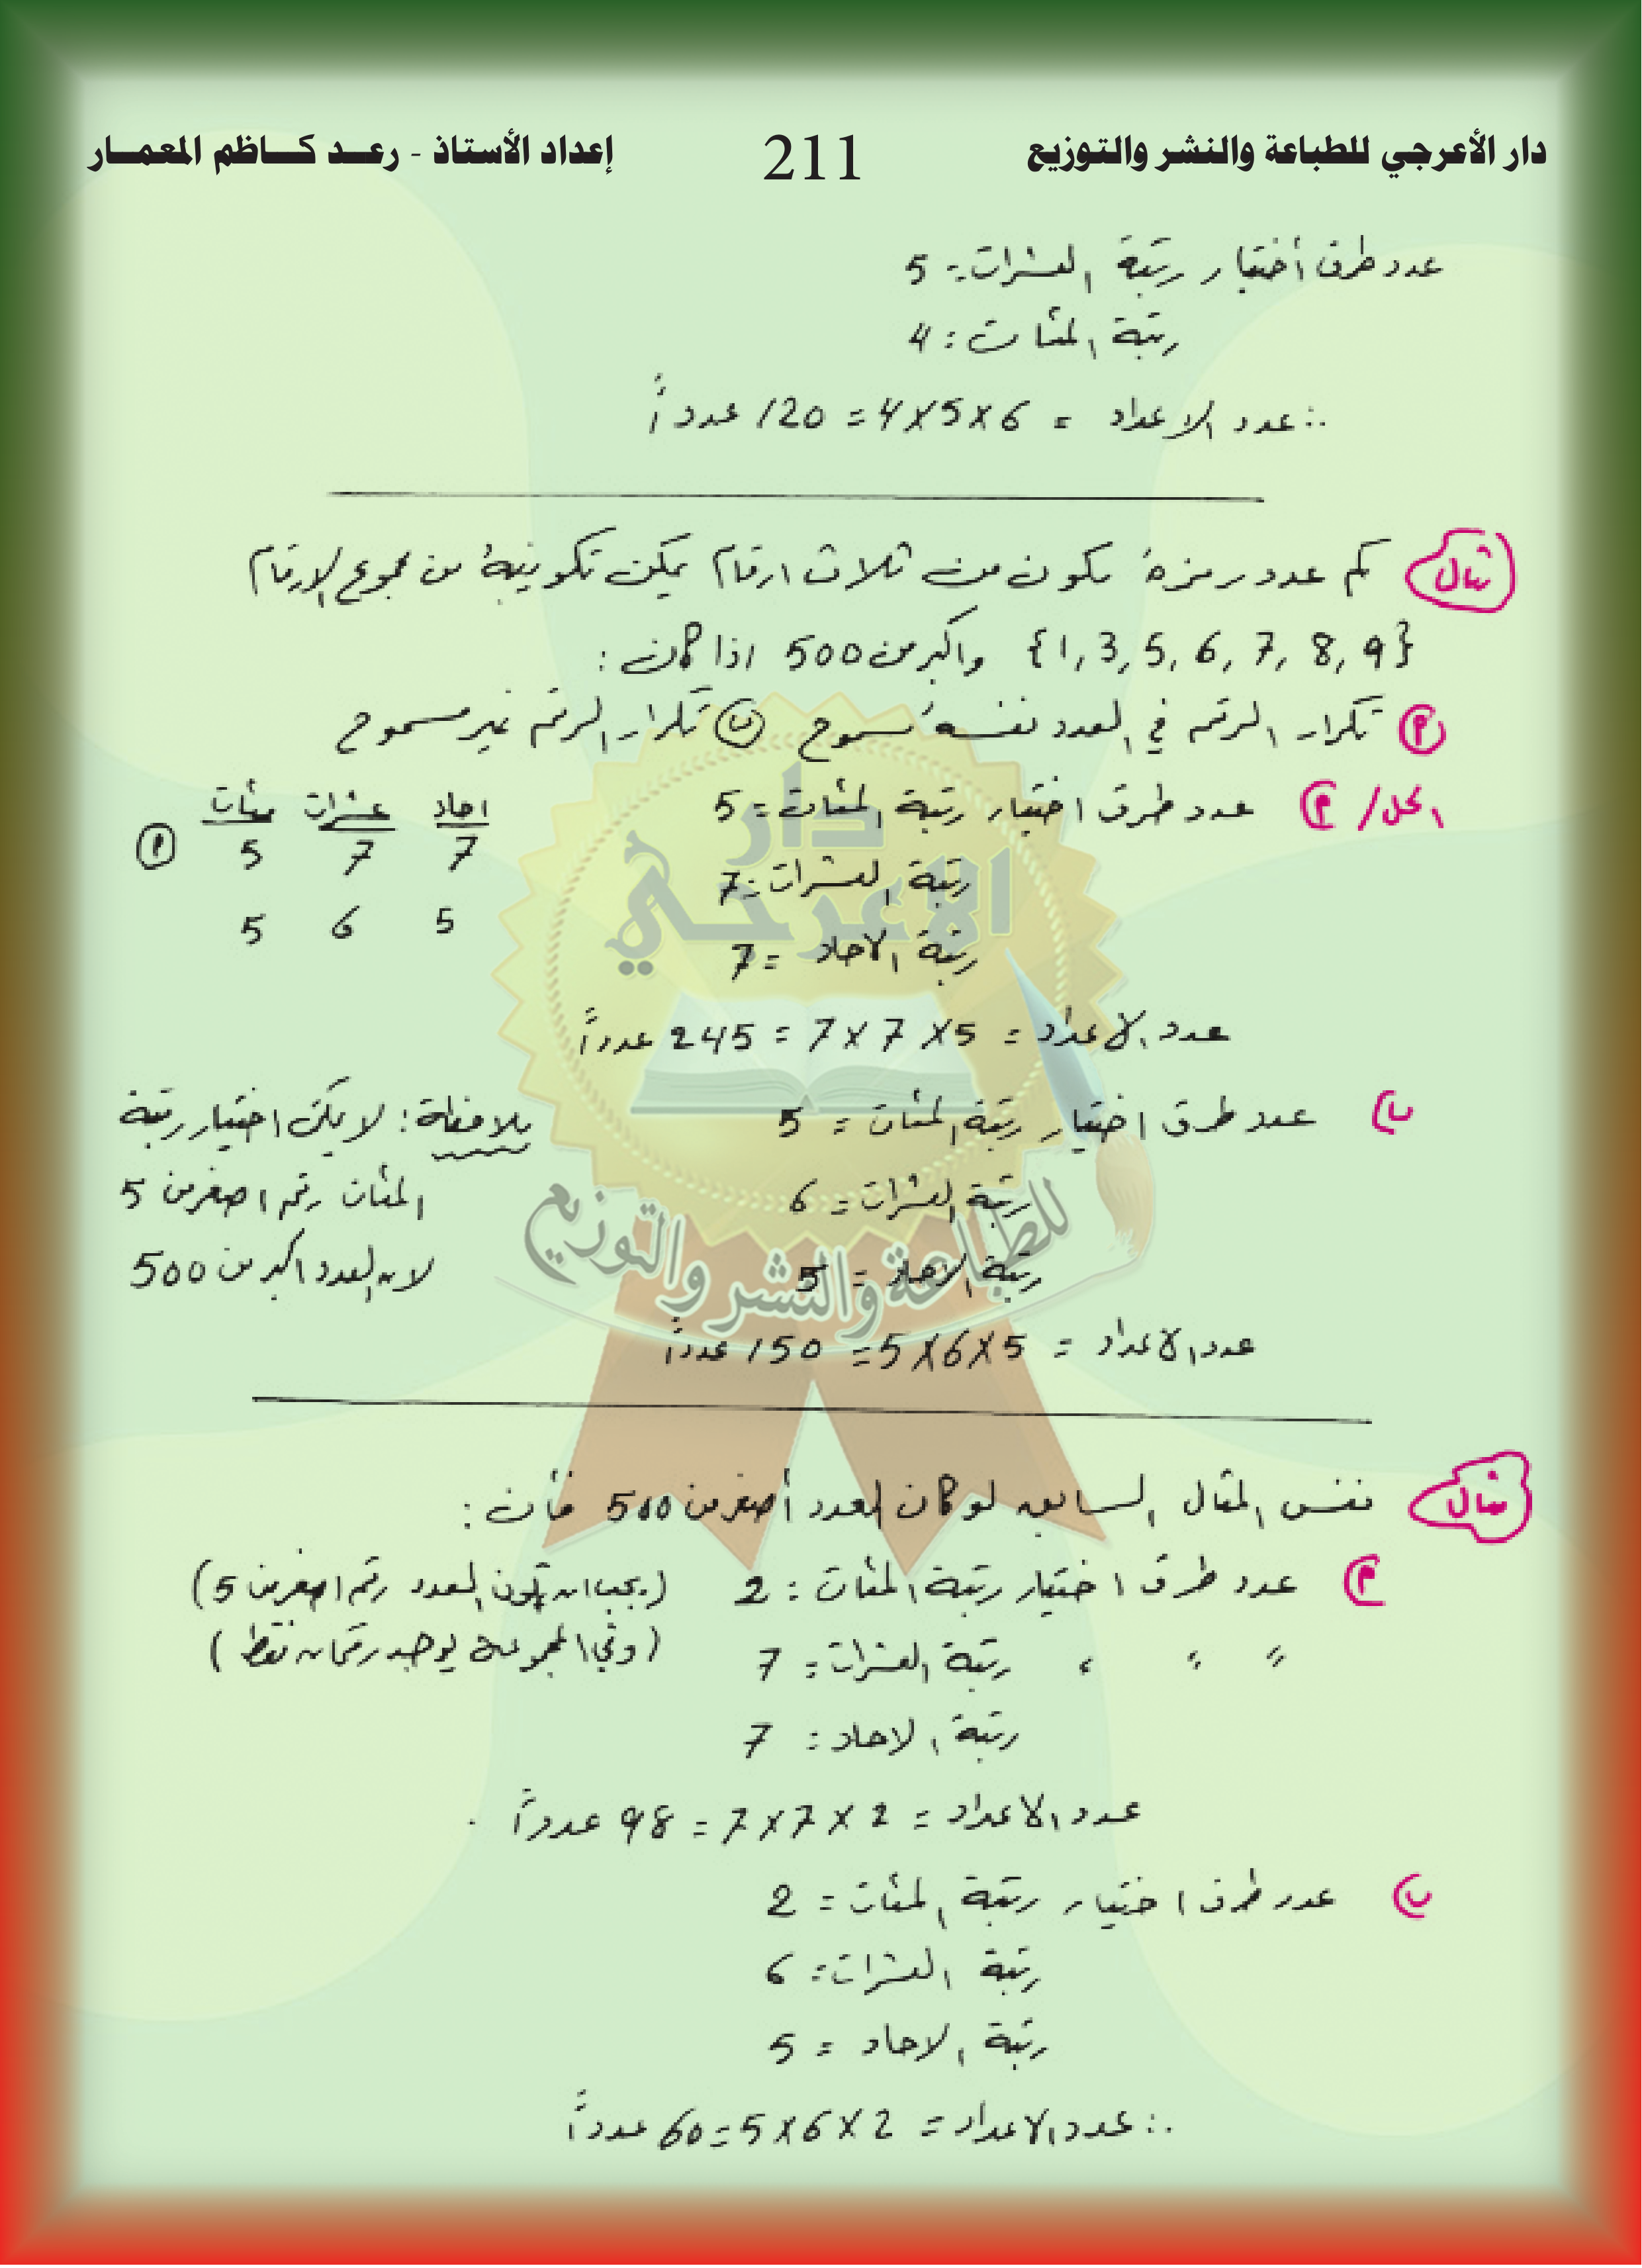 دار الأعرجي للطباعة والنشر والتوزيع 211 إعداد الأستاذ - رعد كاظم المعمار
عدد طرق أختيار رتبة العشرات = 5
رتبة المئات = 4
∴ عدد الاعداد = 6×5×4 = 120 عدداً
مثال كم عدد رمزه مكون من ثلاث ارقام يمكن تكوينه من مجموع الارقام
{1, 3, 5, 6, 7, 8, 9} واكبر من 500 اذا كان :
أ تكرار الرقم في العدد نفسه مسموح ب تكرار الرقم غير مسموح
الحل / أ عدد طرق اختيار رتبة المئات = 5
رتبة العشرات = 7
رتبة الاحاد = 7
احاد عشرات مئات
7 7 5 أ
5 6 5
عدد الاعداد = 5× 7 × 7 = 245 عدداً
ب عدد طرق اختيار رتبة المئات = 5
رتبة العشرات = 6
رتبة الاحاد = 5
ملاحظة : لا يمكن اختيار رتبة
المئات رقم اصغر من 5
لان العدد اكبر من 500
عدد الاعداد = 5×6×5 = 150 عدداً
مثال نفس المثال السابق لو كان العدد أصغر من 500 فأن :
أ عدد طرق اختيار رتبة المئات = 2 (يجب ان يكون العدد رقم اصغر من 5)
〃 〃 〃 رتبة العشرات = 7 (وفي المجموعة يوجد رقمان فقط)
رتبة الاحاد = 7
عدد الاعداد = 2 ×7×7 = 98 عدداً
ب عدد طرق اختيار رتبة المئات = 2
رتبة العشرات = 6
رتبة الاحاد = 5
∴ عدد الاعداد = 2×6×5 = 60 عدداً
دار
الاعرجي
للطباعة والنشر والتوزيع